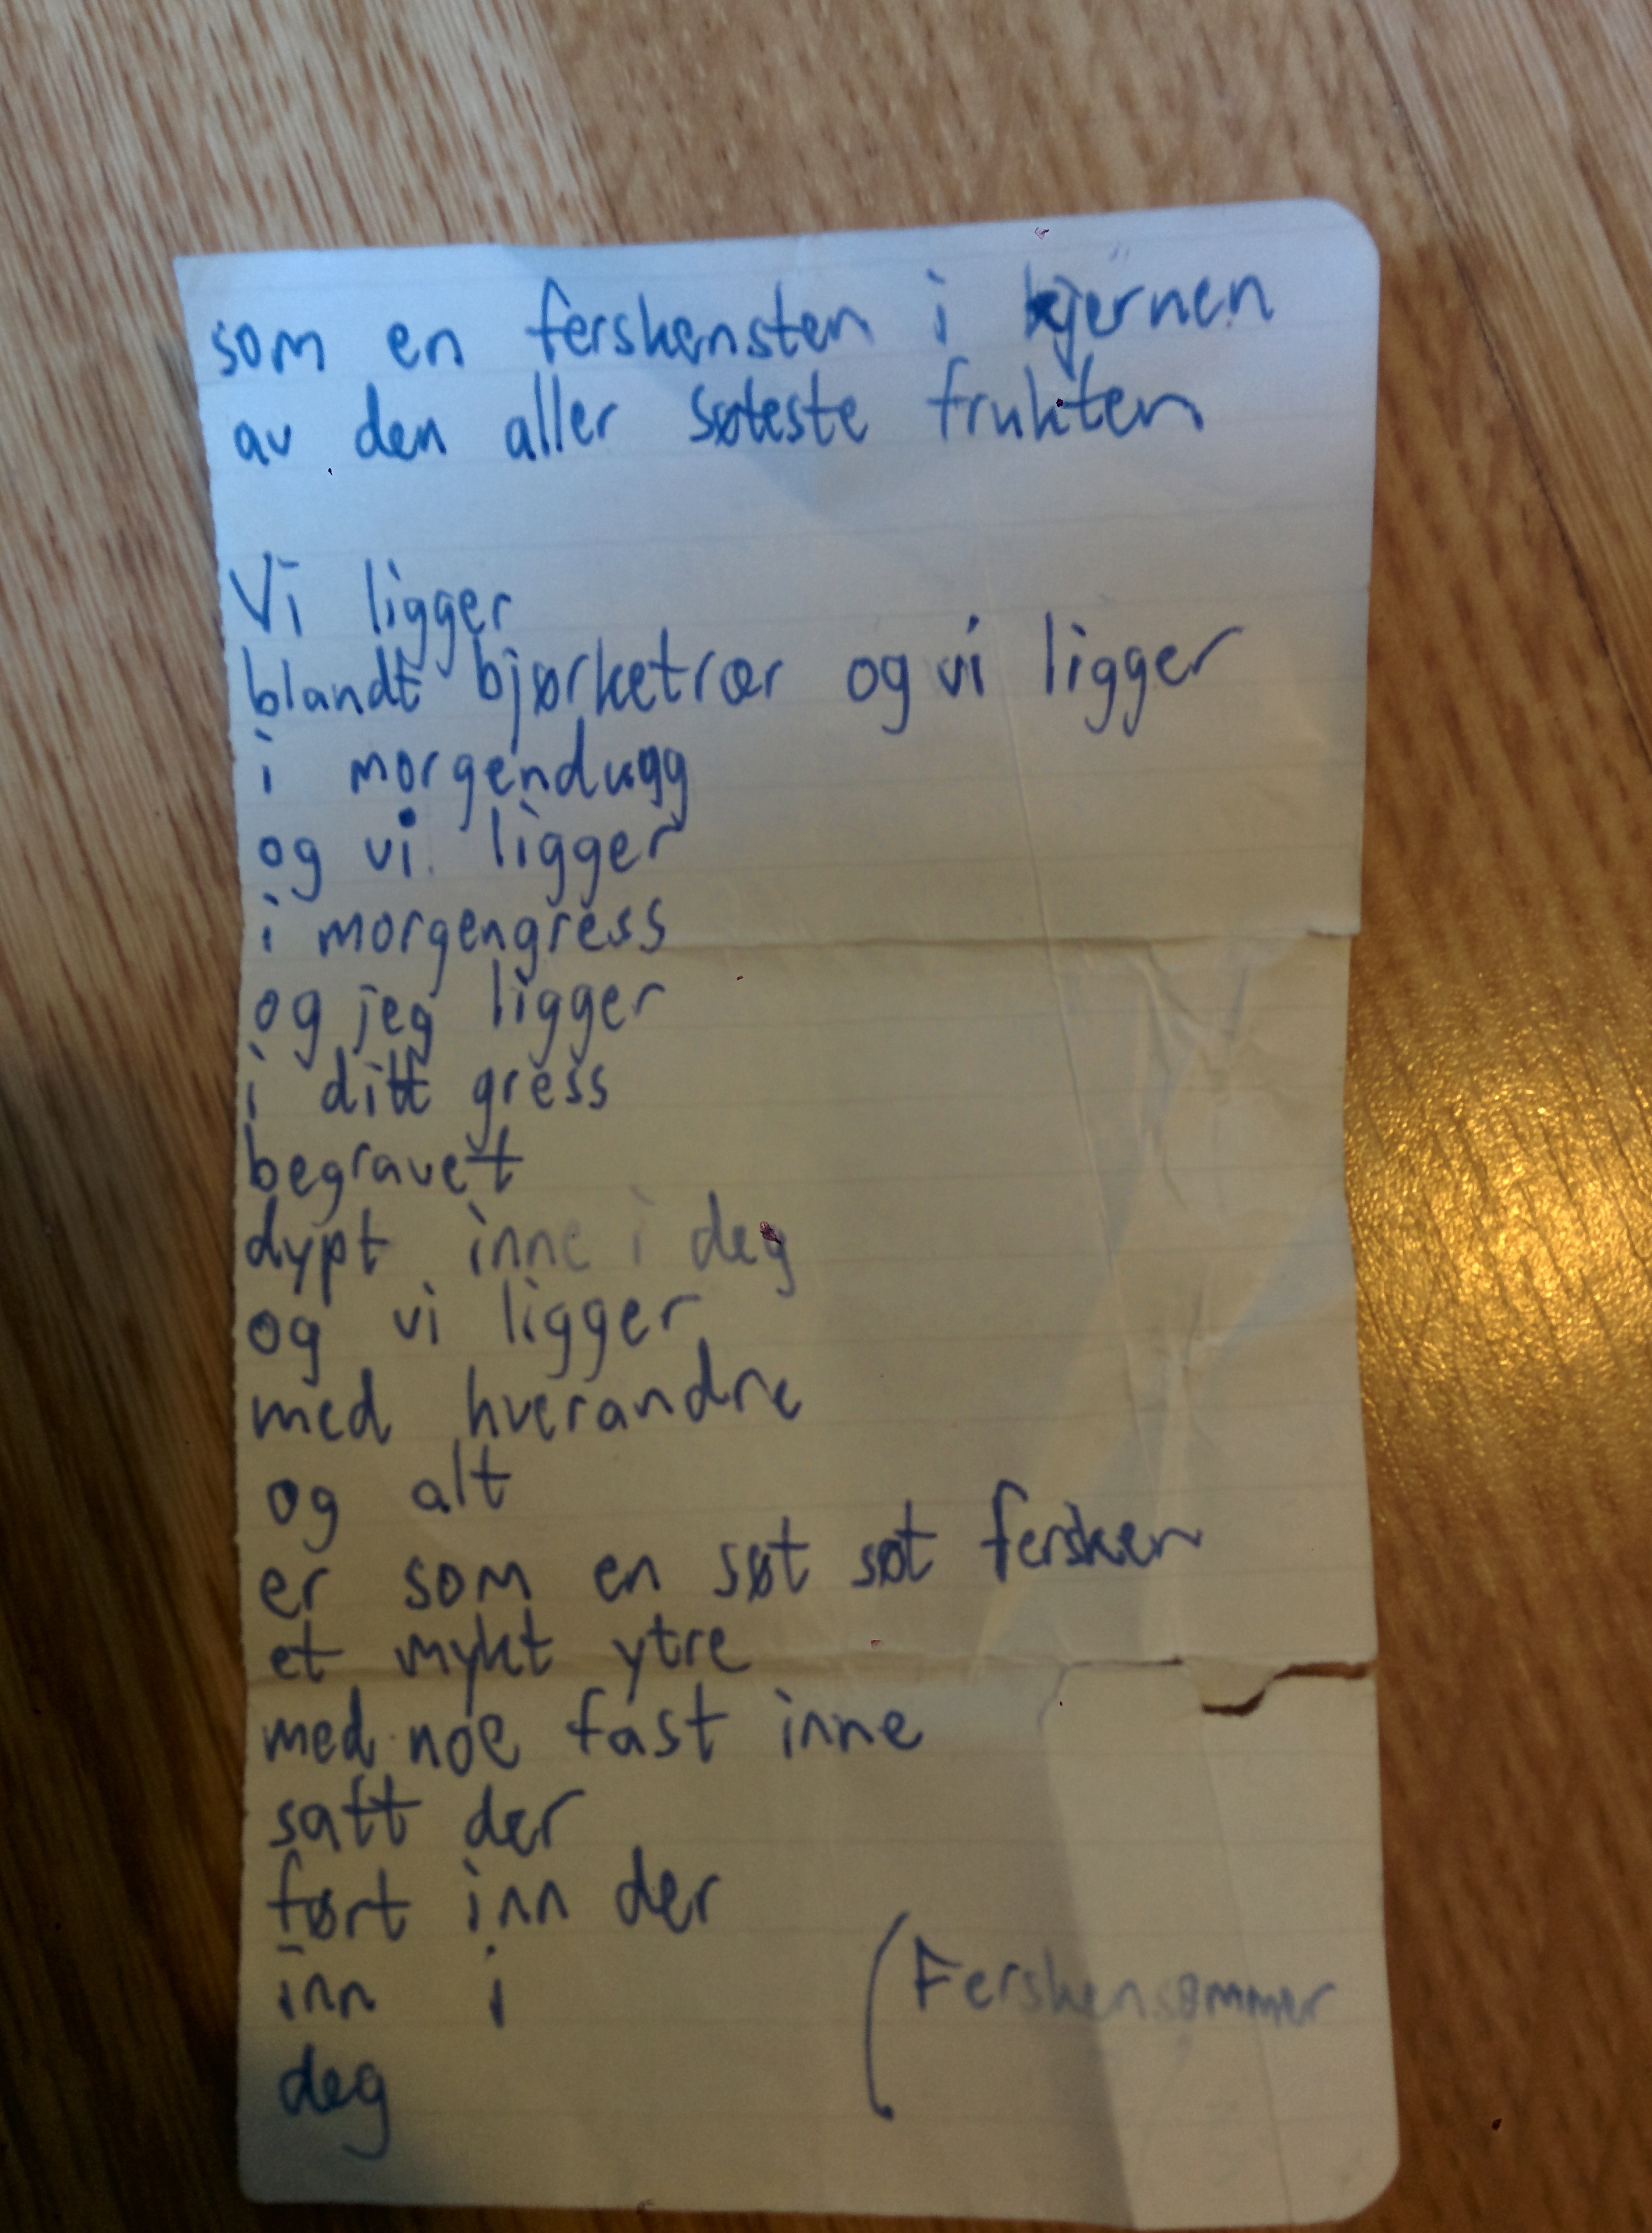 som en ferskensten i kjernen
av den aller søteste frukten
Vi ligger
blandt bjørketrær og vi ligger
i morgendugg
og vi ligger
i morgengress
og jeg ligger
i ditt gress
begravet
dypt inne i deg
og vi ligger
med hverandre
og alt
er som en søt søt fersken
et mykt ytre
med noe fast inne
satt der
ført inn der
inn i
deg
(Ferskensommer